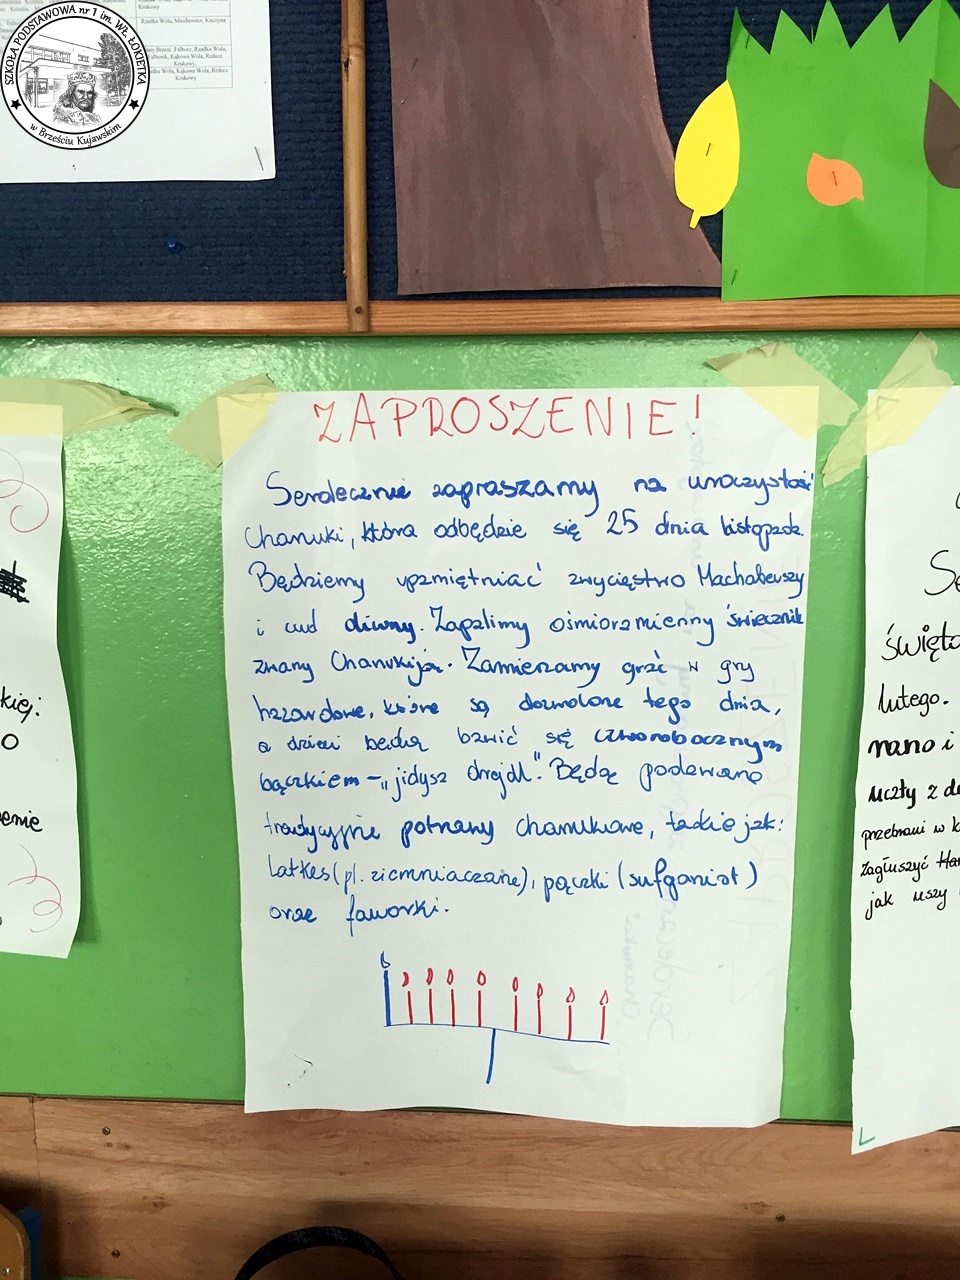 SZKOŁA PODSTAWOWA nr 1 im. WŁ. ŁOKIETKA
w Brześciu Kujawskim
Krukowy
Rzadka Wola, Miechowice, Kuczyna
Krukowy
ZAPROSZENIE!
Serdecznie zapraszamy na uroczystość
Chanuki, która odbędzie się 25 dnia listopada.
Będziemy upamiętniać zwycięstwo Machabeuszy
i cud diwny. Zapalimy ośmioramienny świecznik
zwany Chanukiją. Zamierzamy grać w gry
hazardowe, które są dozwolone tego dnia,
a dzieci będą bawić się czworobocznym
bączkiem – „jidysz drejdl". Będą podawane
tradycyjne potrawy chanukowe, takie jak:
latkes (pl. ziemniaczane), pączki (sufganiot)
oraz faworki.
kiej:
o
enie
Se
święta
lutego.
nano i
uczty z d
przebrani w k
zagłuszyć Ha
jak uszy